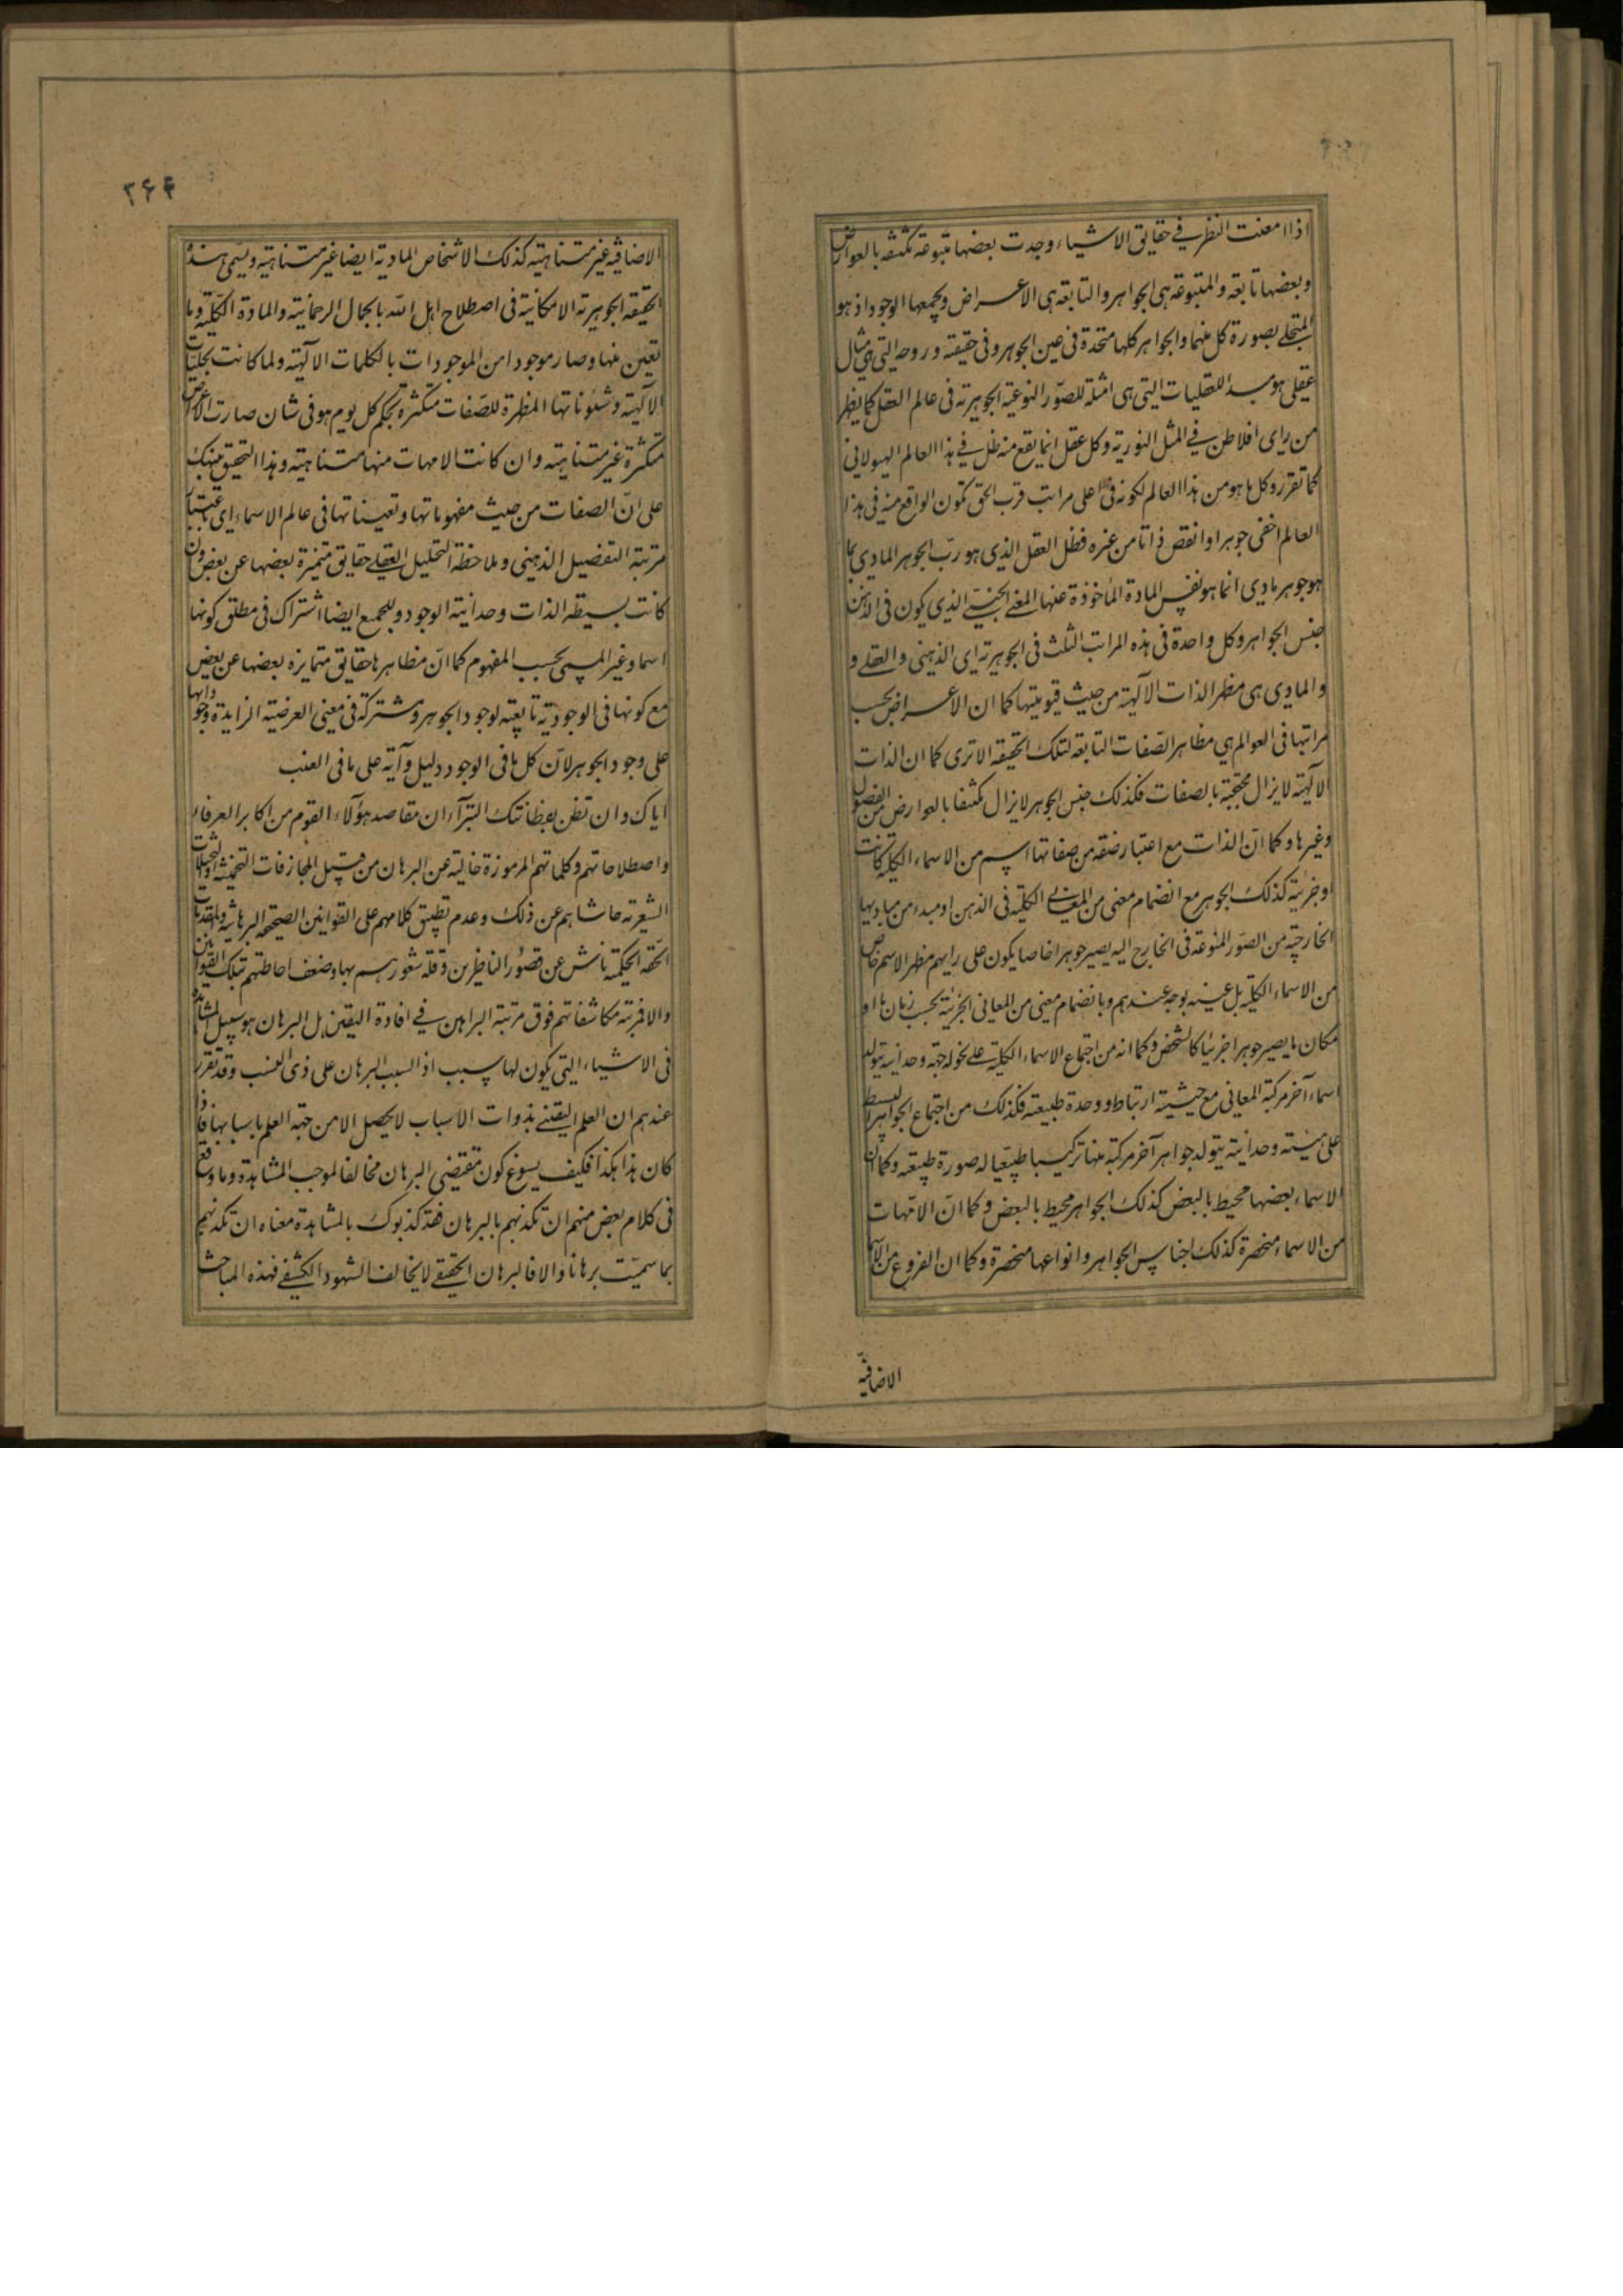 اذا امعنت النظر في حقايق الاشياء وجدت بعضها متبوعة مكتنفة بالعوارض
وبعضها تابعة والمتبوعة هي الجواهر والتابعة هي الاعراض ويجمعها الوجود اذ هو
المتجلي بصورة كل منهما والجواهر كلها متحدة في عين الجوهر وفي حقيقته وروحه التي هي مثال
عقلي هو مبدأ للعقليات التي هي امثلة للصور النوعية الجوهرية في عالم العقل كما يظهر
من راى افلاطن في المثل النورية وكل عقل انما يقع منه ظل في هذا العالم الهيولاني
كما تقرر وكل ما هو من هذا العالم لكونه في اعلى مراتب قرب الحق تكون الواقع منه في هذا
العالم اخفى جوهرا وانقص ذاتا من غيره فظل العقل الذي هو رب الجوهر المادي بما
هو جوهر مادي انما هو نفس المادة المأخوذة عنها المعنى الجنسي الذي يكون في الذهن
جنس الجواهر وكل واحدة في هذه المراتب الثلث في الجوهرية اى الذهني والعقلي و
والمادي هي مظهر الذات الآلهية من حيث قيوميتها كما ان الاعراض بحسب
مراتبها في العوالم هي مظاهر الصفات التابعة لتلك الحقيقة الا ترى كما ان الذات
الآلهية لا يزال محتجبة بالصفات فكذلك جنس الجوهر لا يزال مكتنفا بالعوارض من الفصول
وغيرها وكما ان الذات مع اعتبار صفة من صفاتها اسم من الاسماء الكلية كانت
او جزئية كذلك الجوهر مع انضمام معنى من المعاني الكلية في الذهن او مبدء من مباديها
الخارجية من الصور المنوعة في الخارج اليه يصير جوهرا خاصا يكون على رايهم مظهر الاسم خاص
من الاسماء الكلية بل عينه بوجه عندهم وبانضمام معنى من المعاني الجزئية بحسب زمان ما او
مكان ما يصير جوهرا جزئيا كالشخص وكما انه من اجتماع الاسماء الكلية على نحو له جهة وحدانية يتولد
اسماء آخر مركبة المعاني مع حيثية ارتباط ووحدة طبيعته فكذلك من اجتماع الجواهر البسيطة
على هيئة وحدانية يتولد جواهر آخر مركبة منها تركيبا طبيعيا له صورة طبيعته وكما ان
الاسماء بعضها محيط بالبعض كذلك الجواهر محيط بالبعض وكما ان الامهات
من الاسماء منحصرة كذلك اجناس الجواهر وانواعها منحصرة وكما ان الفروع من الاسماء
الاضافية
۳۶۴
الاضافية غير متناهية كذلك الاشخاص المادية ايضا غير متناهية ويسمى هذه
الحقيقة الجوهرية الامكانية في اصطلاح اهل الله بالجمال الرحمانية والمادة الكلية وما
تعين منها وصار موجودا من الموجودات بالكلمات الآلهية ولما كانت تجليات
الآلهية وشئوناتها المظهرة للصفات متكثرة بحكم كل يوم هو في شان صارت الاعراض
متكثرة غير متناهية وان كانت الامهات منها متناهية وهذا التحقيق ينبهك
على ان الصفات من حيث مفهوماتها وتعيناتها في عالم الاسماء اى باعتبار
مرتبة التفصيل الذهني وملاحظة التحليل العقلي حقايق متميزة بعضها عن بعض وان
كانت بسيطة الذات وحدانية الوجود وللجميع ايضا اشتراك في مطلق كونها
اسما وغير المسمى بحسب المفهوم كما ان مظاهرها حقايق متمايزه بعضها عن بعض
مع كونها في الوجود ية تابعته لوجود الجوهر ومشتركة في معنى العرضية الزايدة وجوداتها
على وجود الجوهر لان كل ما في الوجود دليل وآية على ما في الغيب
اياك وان تظن بفطانتك البترآء ان مقاصد هؤلآء القوم من اكابر العرفاء
واصطلاحاتهم وكلماتهم المرموزة خالية عن البرهان من قبيل المجازفات التخمينية والتخيلات
الشعرية حاشاهم عن ذلك وعدم تطبيق كلامهم على القوانين الصحيحة البرهانية والمقدمات
الحقة الحكمية ناش عن قصور الناظرين وقلة شعورهم بها وضعف احاطتهم بتلك القوانين
والا فمرتبة مكاشفاتهم فوق مرتبة البراهين في افادة اليقين بل البرهان هو سبيل المشاهدة
في الاشياء التي يكون لها سبب اذ السبب البرهان على ذى السبب وقد تقرر
عندهم ان العلم اليقيني بذوات الاسباب لا يحصل الا من جهة العلم باسبابها فاذا
كان هذا هكذا فكيف يسوغ كون مقتضى البرهان مخالفا لموجب المشاهدة وما وقع
في كلام بعض منهم ان تكذبهم بالبرهان فقد كذبوك بالمشاهدة معناه ان تكذبهم
بما سميت برهانا والا فالبرهان الحقيقي لا يخالف الشهود الكشفي فهذه المباحث